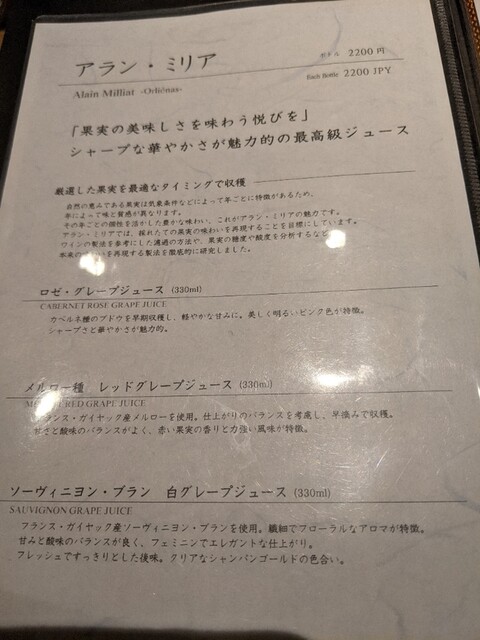 アラン・ミリア
ボトル 2200円
Alain Milliat -Orliénas-
Each Bottle 2200 JPY
「果実の美味しさを味わう悦びを」
シャープな華やかさが魅力的の最高級ジュース
厳選した果実を最適なタイミングで収穫
自然の恵みである果実は気象条件などによって年ごとに特徴があるため、
年によって味と質感が異なります。
その年ごとの個性を活かした豊かな味わい、これがアラン・ミリアの魅力です。
アラン・ミリアでは、採れたての果実の味わいを再現することを目標にしています。
ワインの製法を参考にした濾過の方法や、果実の糖度や酸度を分析するなど
本来の いを再現する製法を徹底的に研究しました。
ロゼ・グレープジュース (330ml)
CABERNET ROSE GRAPE JUICE
カベルネ種のブドウを早期収穫し、軽やかな甘みに。美しく明るいピンク色が特徴。
シャープさと華やかさが魅力的。
メルロー種 レッドグレープジュース (330ml)
RED GRAPE JUICE
フランス・ガイヤック産メルローを使用。仕上がりのバランスを考慮し、早摘みで収穫。
甘さと酸味のバランスがよく、赤い果実の香りと力強い風味が特徴。
ソーヴィニヨン・ブラン 白グレープジュース (330ml)
SAUVIGNON GRAPE JUICE
フランス・ガイヤック産ソーヴィニヨン・ブランを使用。繊細でフローラルなアロマが特徴。
甘みと酸味のバランスが良く、フェミニンでエレガントな仕上がり。
フレッシュですっきりとした後味。クリアなシャンパンゴールドの色合い。